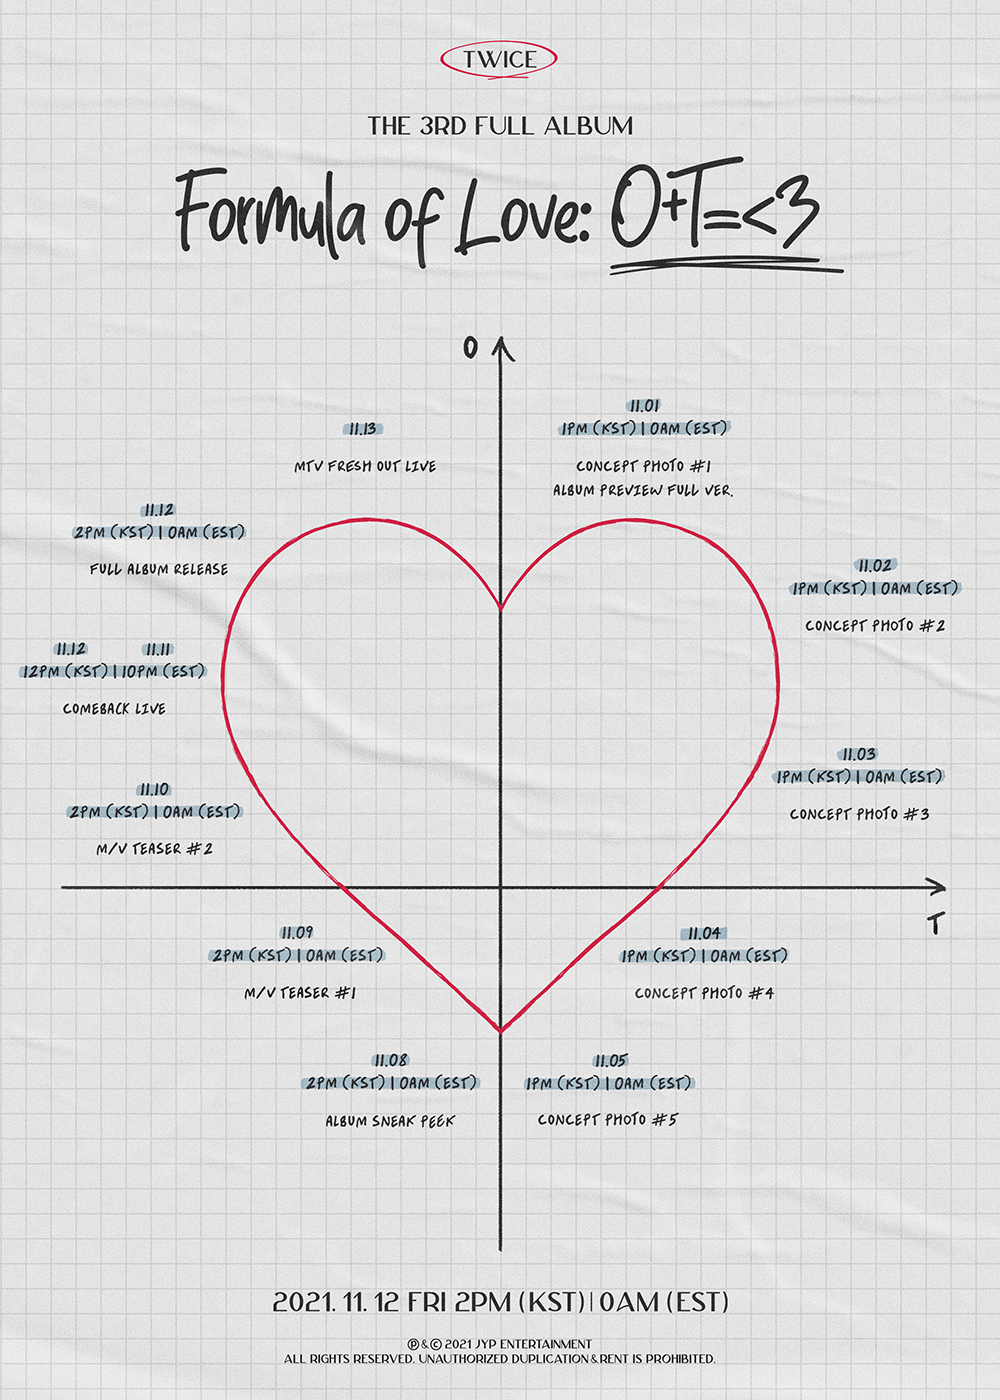 TWICE
THE 3RD FULL ALBUM
Formula of Love: O+T=<3
O
11.01
1PM (KST) | 0AM (EST)
CONCEPT PHOTO #1
ALBUM PREVIEW FULL VER.
11.02
1PM (KST) | 0AM (EST)
CONCEPT PHOTO #2
11.03
1PM (KST) | 0AM (EST)
CONCEPT PHOTO #3
T
11.04
1PM (KST) | 0AM (EST)
CONCEPT PHOTO #4
11.05
1PM (KST) | 0AM (EST)
CONCEPT PHOTO #5
11.08
2PM (KST) | 0AM (EST)
ALBUM SNEAK PEEK
11.09
2PM (KST) | 0AM (EST)
M/V TEASER #1
11.10
2PM (KST) | 0AM (EST)
M/V TEASER #2
11.12 11.11
12PM (KST) | 10PM (EST)
COMEBACK LIVE
11.12
2PM (KST) | 0AM (EST)
FULL ALBUM RELEASE
11.13
MTV FRESH OUT LIVE
2021. 11. 12 FRI 2PM (KST) | 0AM (EST)
Ⓟ & © 2021 JYP ENTERTAINMENT
ALL RIGHTS RESERVED. UNAUTHORIZED DUPLICATION & RENT IS PROHIBITED.